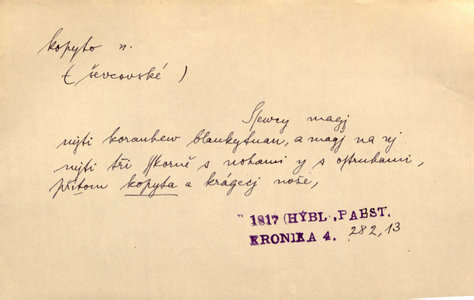 kopyto n.
(ševcovské)
Ssewcy magj
mjti korauhew blankytnau, a magj na nj
mjti tři sskorně s nohami y s ostruhami,
přitom kopyta a krágecý nože,
1817 (HÝBL), PABST.
KRONIKA 4. 282,13